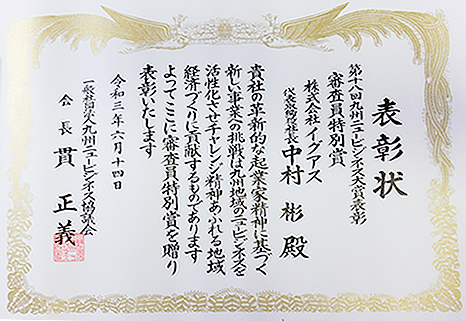 表彰状
第十八回九州ニュービジネス大賞表彰
審査員特別賞
株式会社イグアス
代表取締役社長 中村 彬 殿
貴社の革新的な起業家精神に基づく
新しい事業への挑戦は九州地域のニュービジネスを
活性化させチャレンジ精神あふれる地域
経済づくりに貢献するものであります
よってここに審査員特別賞を贈り
表彰いたします
令和三年六月十四日
一般社団法人九州ニュービジネス協議会
会長 貫 正義